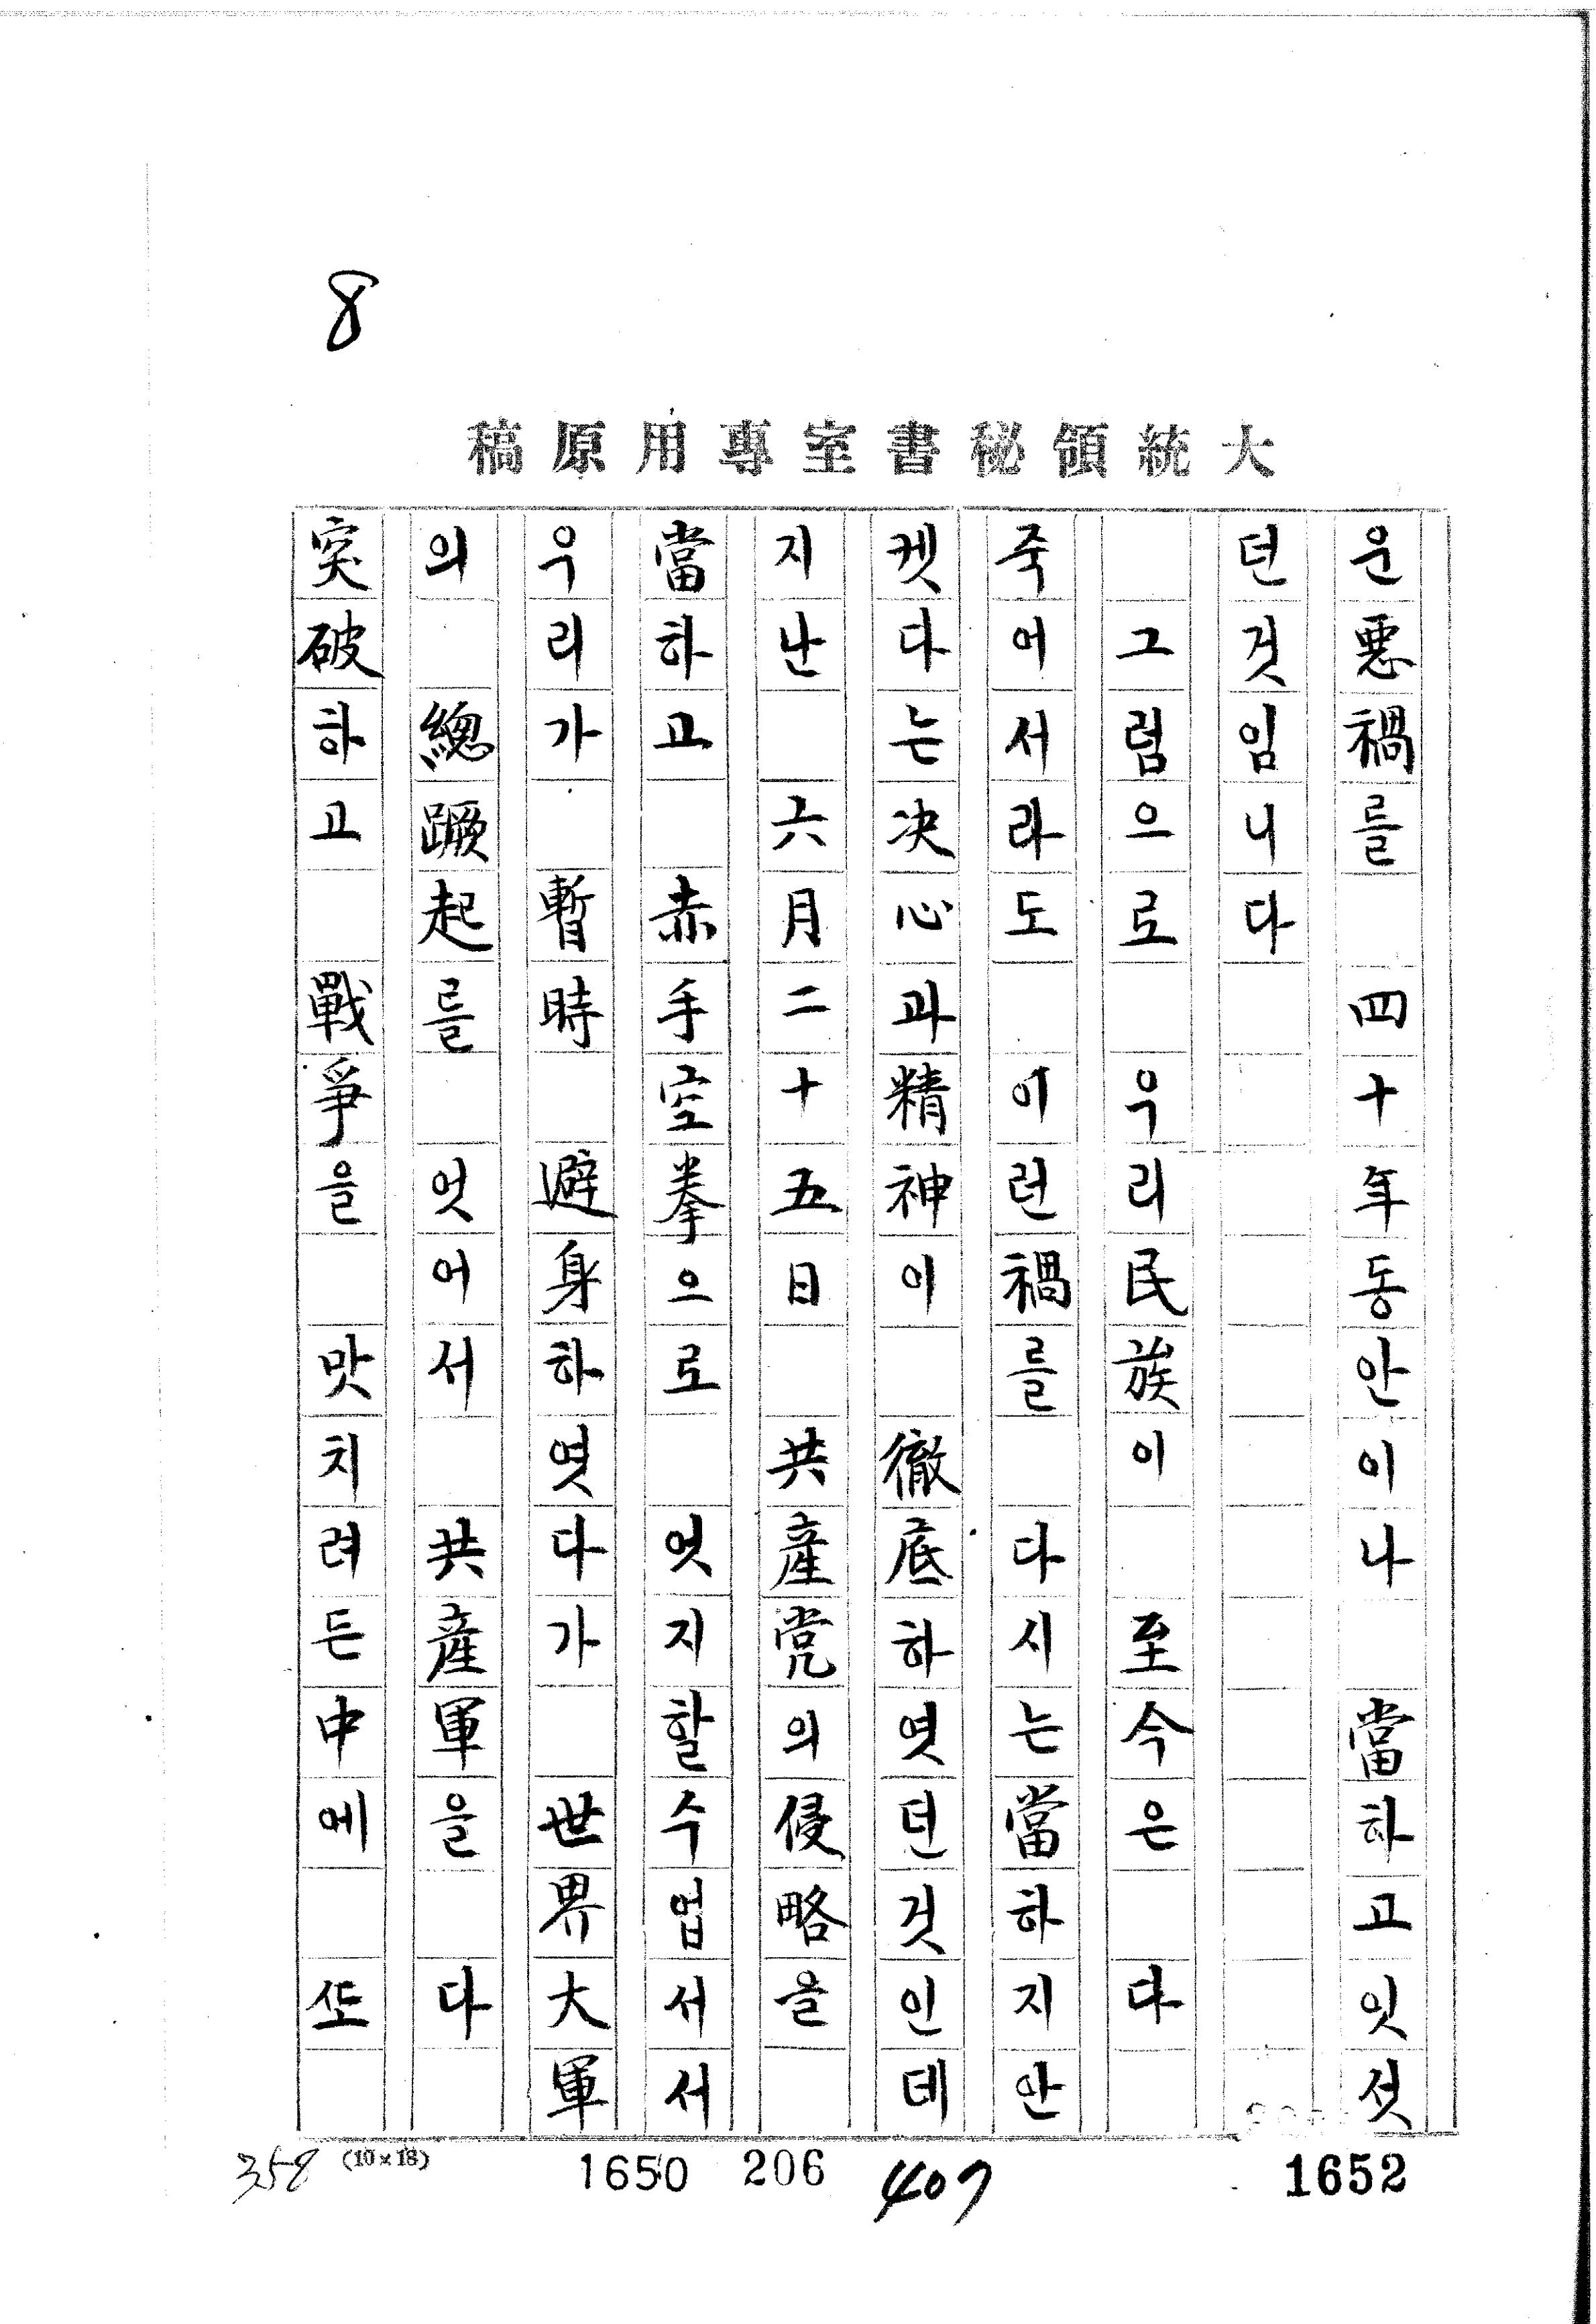 8
大統領秘書室專用原稿
운惡禍를 四十年동안이나 當하고잇섯
던것임니다
그럼으로 우리民族이 至今은 다
죽어서라도 이런禍를 다시는當하지안
켓다는決心과精神이 徹底하엿던것인데
지난 六月二十五日 共産党의侵略을
當하고 赤手空拳으로 엇지할수업서서
우리가 暫時 避身하엿다가 世界大軍
의 總蹶起를 엇어서 共産軍을 다
突破하고 戰爭을 맛치려든中에 ᄯᅩ
358 (10×18) 1650 206 407 1652